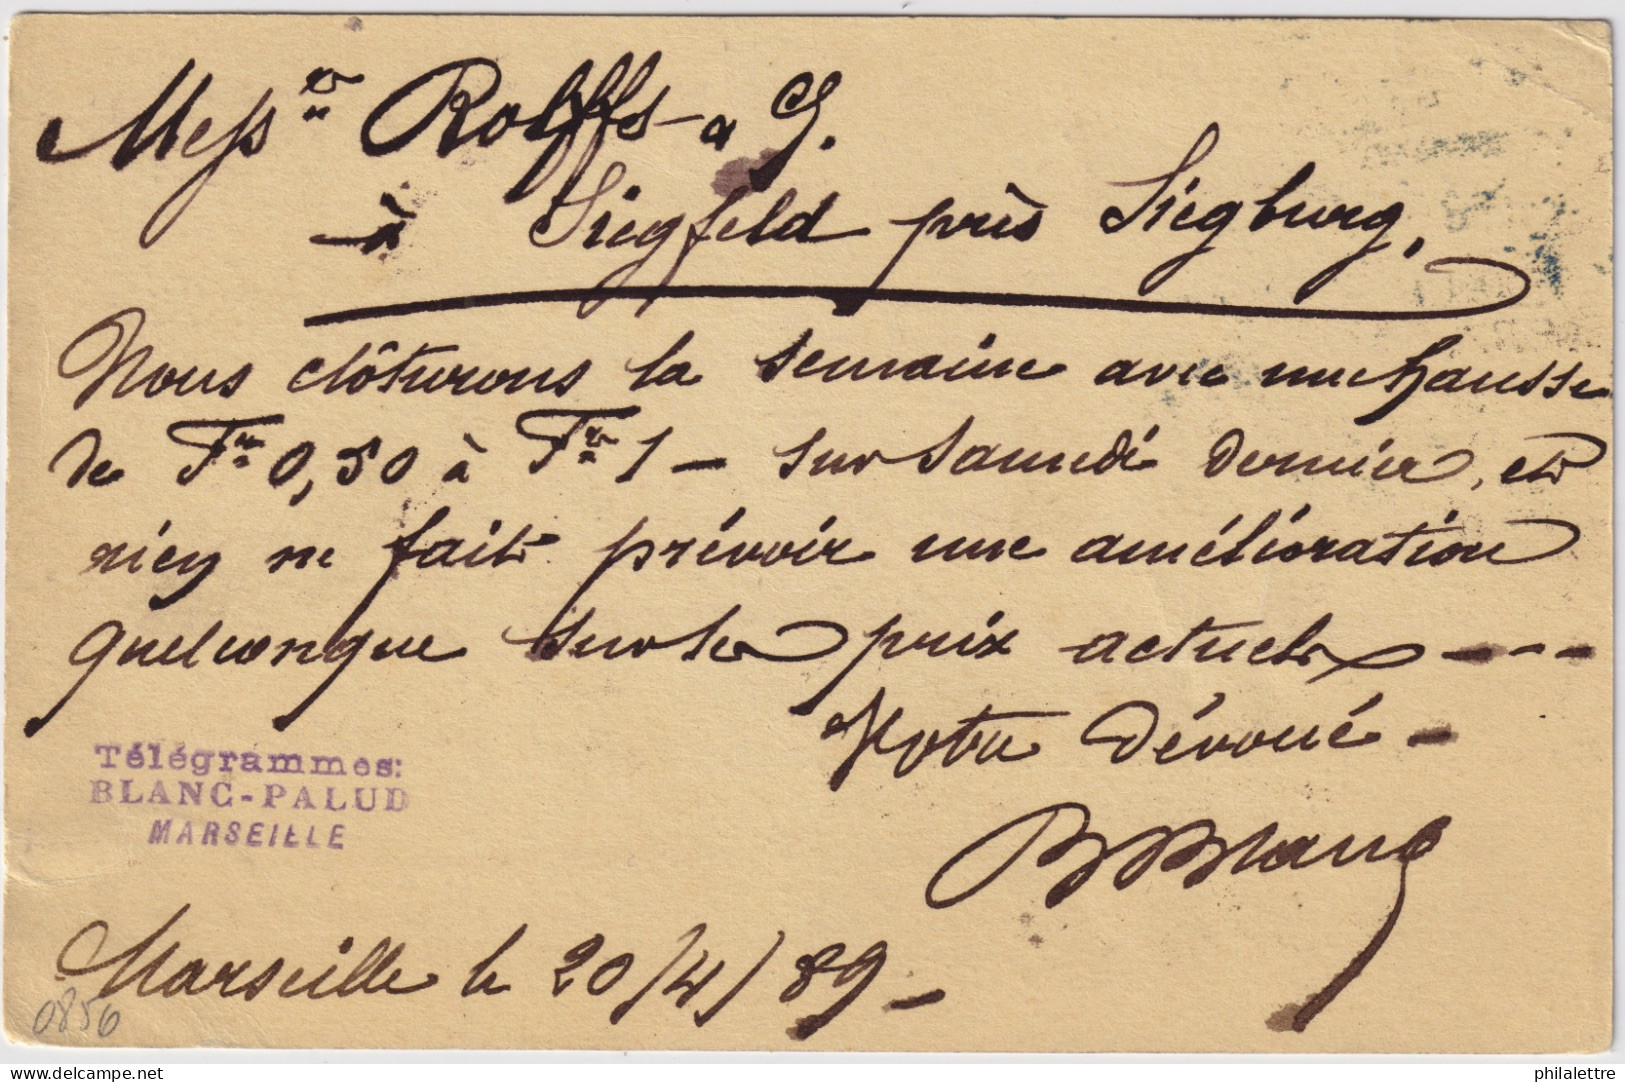 Messrs Rolffs & C.
à Siegfeld près Siegburg.
Nous clôturons la semaine avec une hausse
de Frs 0,50 à Frs 1 - sur Samedi dernier, et
rien ne fait prévoir une amélioration
quelconque sur les prix actuels ----
Votre Dévoué -
Blanc
Télégrammes:
BLANC-PALUD
MARSEILLE
Marseille le 20/4/89 -
0856
delcampe.net
philalettre